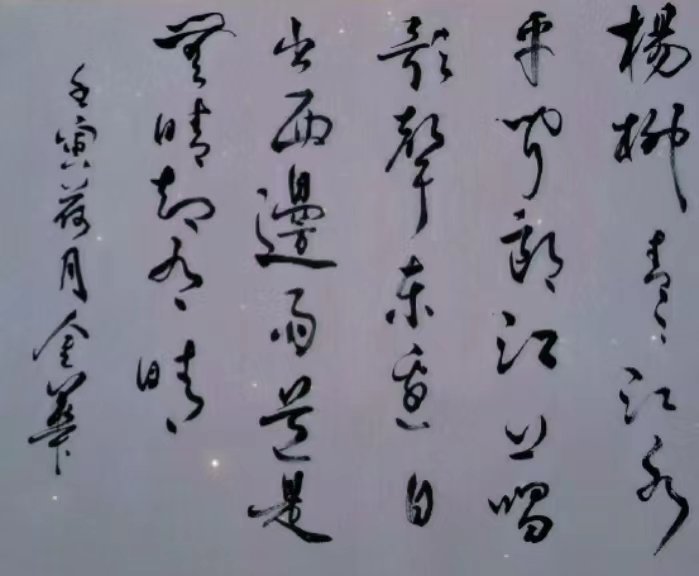 楊柳青々江水
平聞郎江上唱
歌聲東邊日
出西邊雨道是
無晴却有晴
壬寅荷月金華